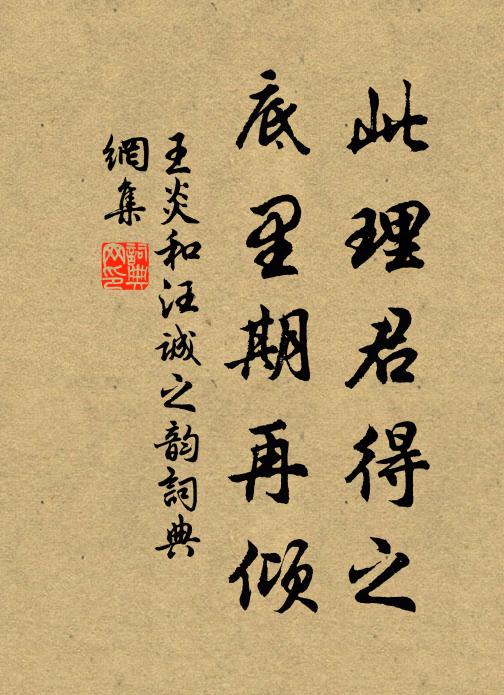 此理君得之
底里期再倾
王炎和汪诚之韵詞典
網集
詞典网印